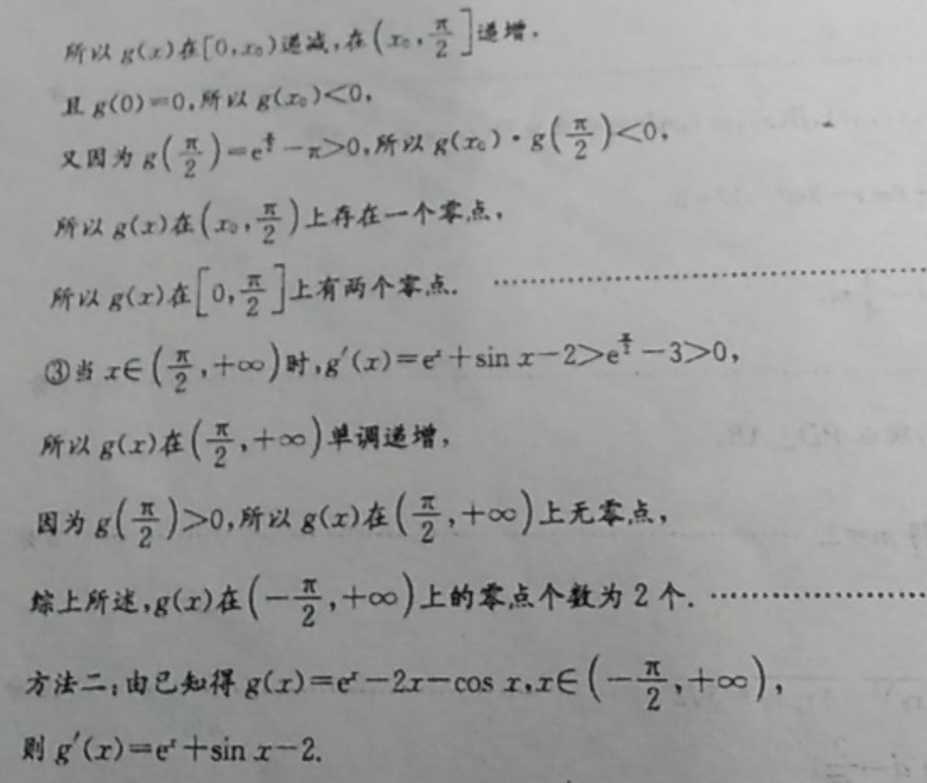 所以 g(x)在[0,x₀)递减,在(x₀,π/2]递增.
且 g(0)=0,所以 g(x₀)<0,
又因为 g(π/2)=e^(π/2)-π>0,所以 g(x₀)·g(π/2)<0,
所以 g(x)在(x₀,π/2)上存在一个零点,
所以 g(x)在[0,π/2]上有两个零点. ………………
③当 x∈(π/2,+∞)时,g′(x)=eˣ+sin x-2>e^(π/2)-3>0,
所以 g(x)在(π/2,+∞)单调递增,
因为 g(π/2)>0,所以 g(x)在(π/2,+∞)上无零点,
综上所述,g(x)在(-π/2,+∞)上的零点个数为 2 个. ………………
方法二:由已知得 g(x)=eˣ-2x-cos x,x∈(-π/2,+∞),
则 g′(x)=eˣ+sin x-2.